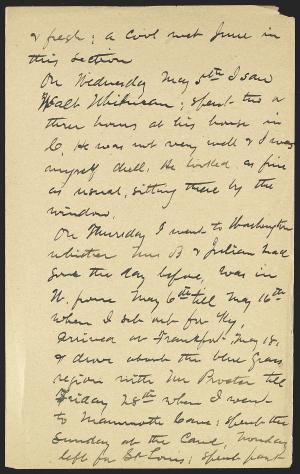 & fresh; a cool wet June in
this section
On Wednesday May 5th I saw
Walt Whitman; spent two or
three hours at his house in
C. He was not very well & I was
myself dull. He looked as fine
as usual, sitting there by the
window.
On Thursday I went to Washington
whither Mrs B & Julian had
gone the day before, was in
W. from May 6th till May 16th
when I set out for Ky,
arrived at Frankfort May 18,
& drove about the blue grass
region with Mr Procter till
Friday 28th when I went
to Mammoth Cave; spent the
Sunday at the Cave, Monday
left for St Louis; spent part